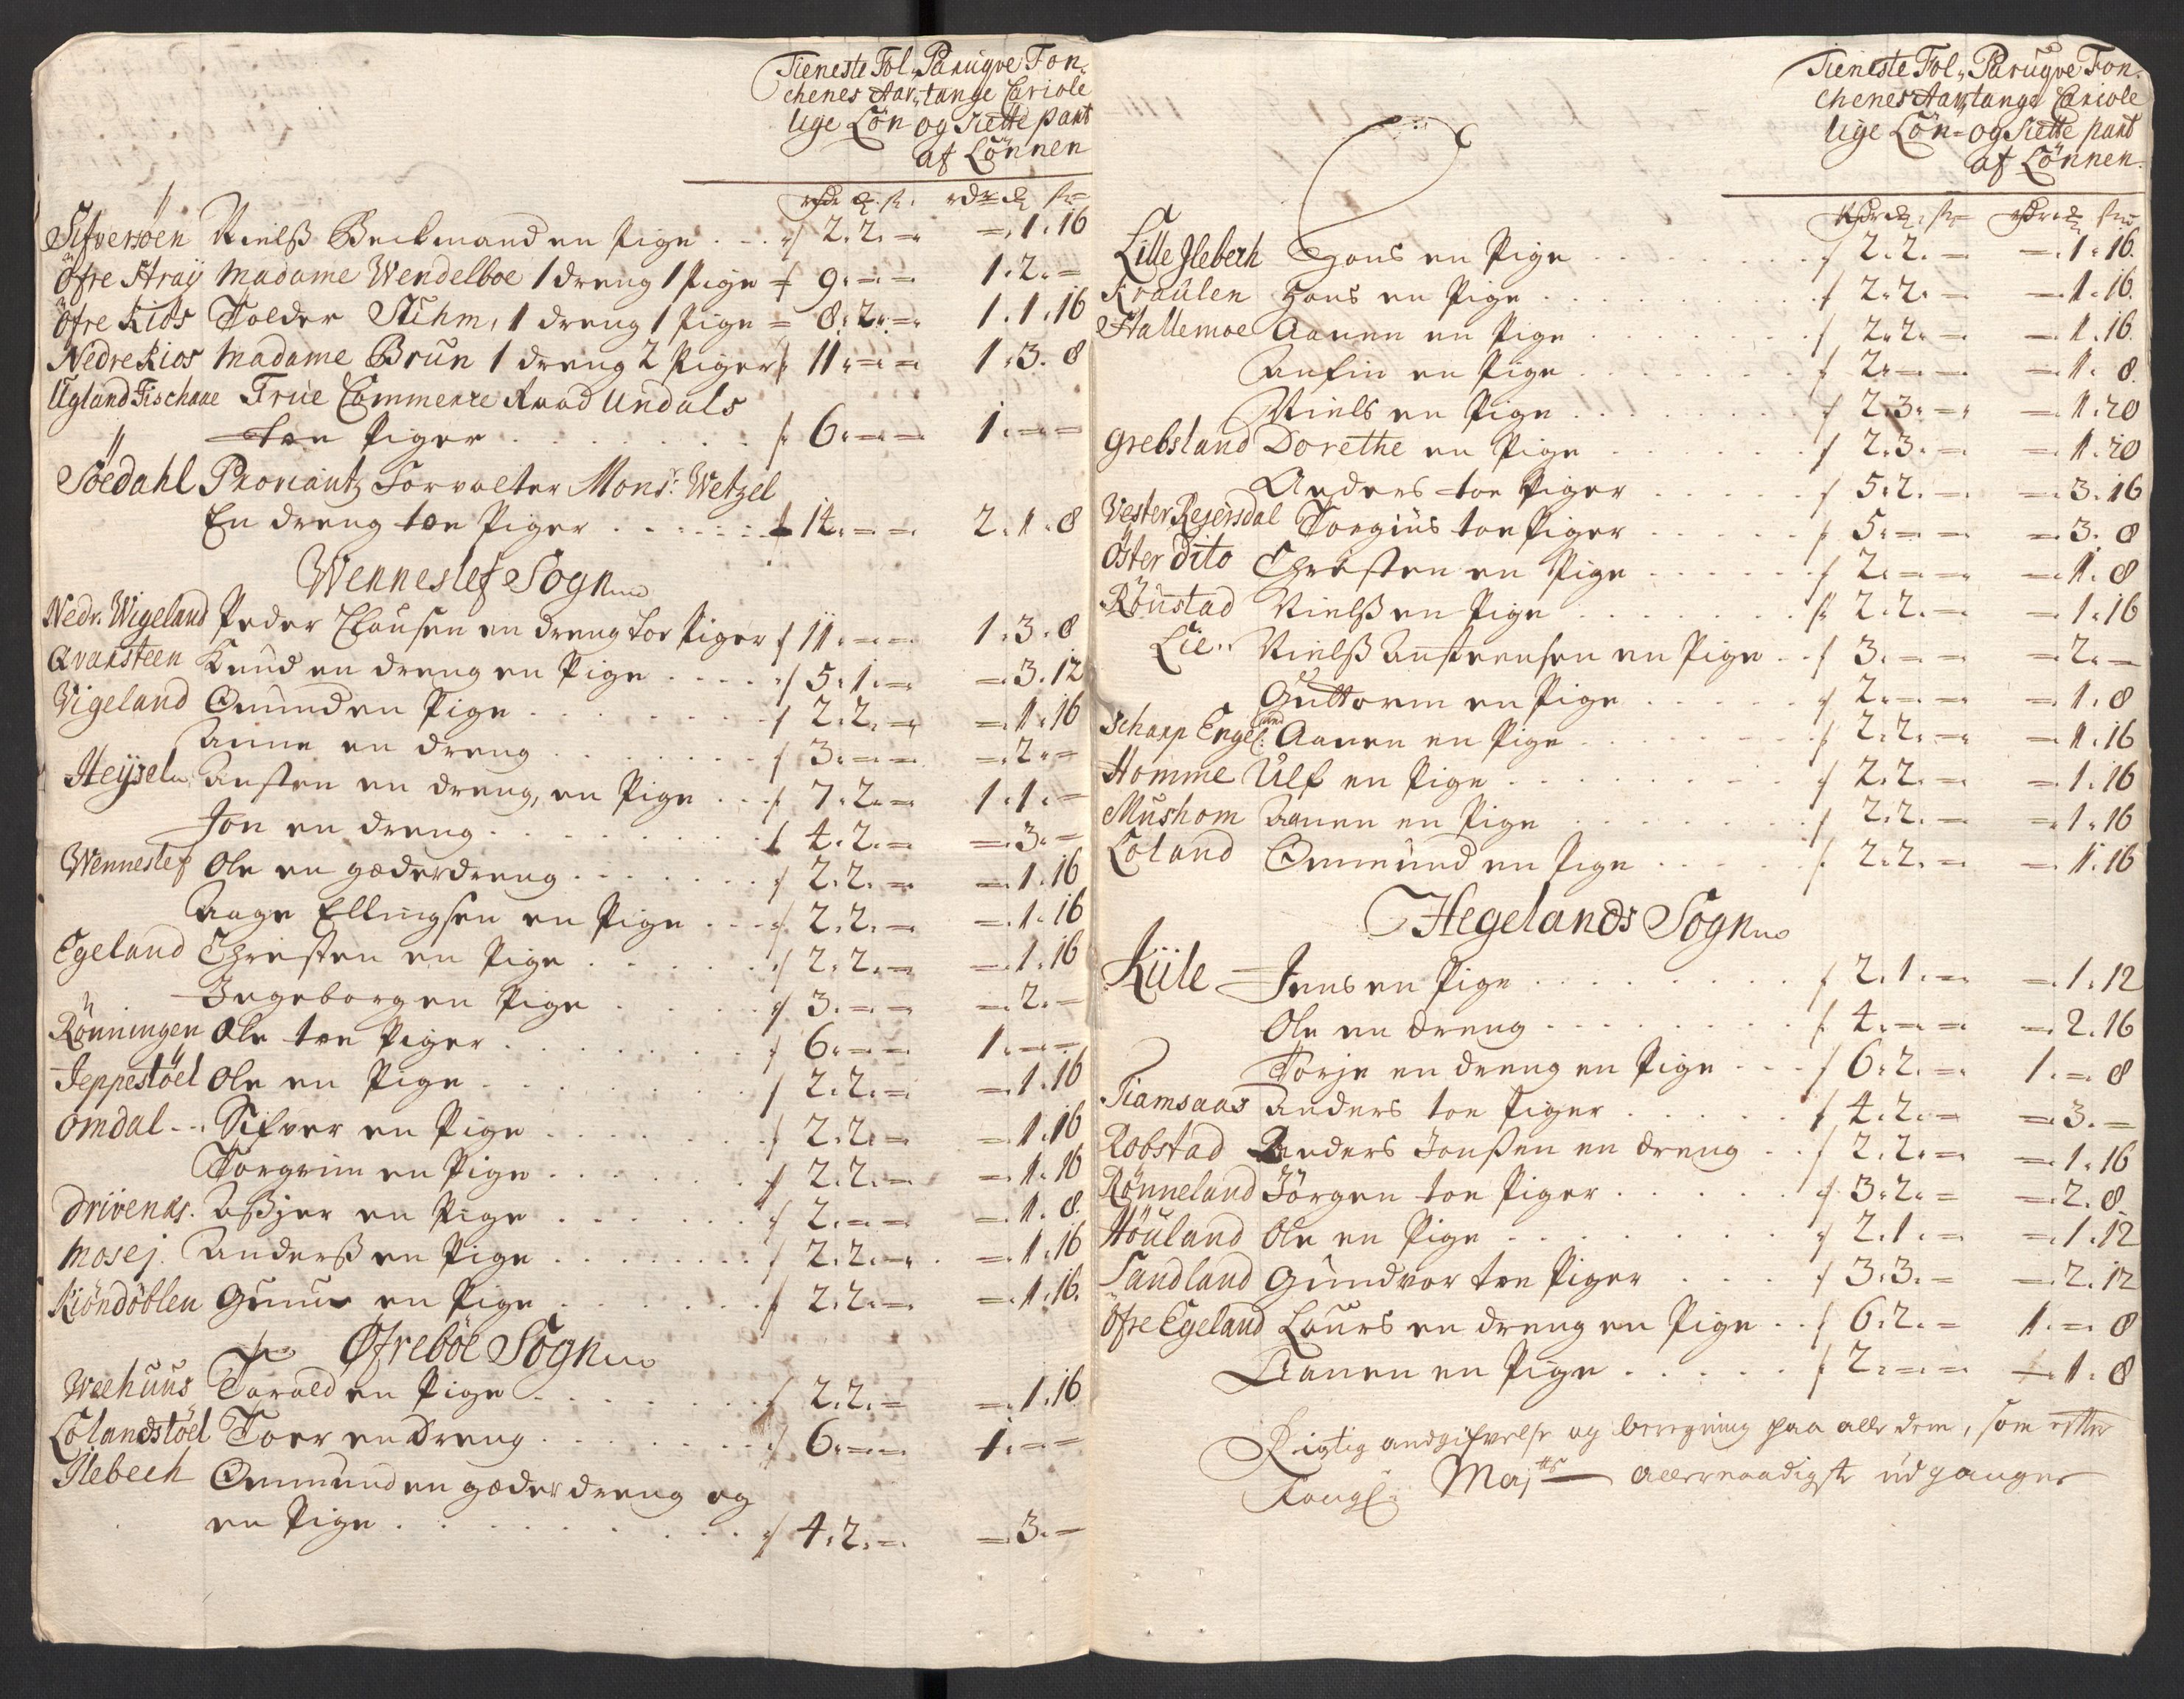 Tieneste Fol„ Paruqve Fon„
chenes Aar„ tange Cariole
lige Lön og siette part
af Lönnen
rdr ort s. rdr ort s.
Sifversøen Nielß Beckmand en Pige 2. 2. - -. 1. 16
öfre Straÿ Madame Wendelboe 1 dreng 1 Pige 9. - - 1. 2. -
öfre Kios Tolder Stuhm, 1 dreng 1 Pige 8. 2. - 1. 1. 16
Nedre Kios Madame Brun 1 dreng 2 Piger 11. - - 1. 3. 8
Ugland Fischaae Frue Commerce Raad Undals
toe Piger 6. - - 1. - -
Söedahl Proviantz Forvalter Monsr: Wetzel
En dreng toe Piger 14. - - 2. 1. 8
Wenneslef Sogn
Nedr. Wigeland Peder Clausen en dreng toe Piger 11. - - 1. 3. 8
Qvarsteen Knud en dreng en Pige 5. 1. - -. 3. 12
Vigeland Omund en Pige 2. 2. - -. 1. 16
Anne en dreng 3. - - -. 2. -
Heÿsel Austen en dreng, en Pige 7. 2. - 1. 1. -
Jon en dreng 4. 2. - -. 3. -
Wenneslef Ole en gæderdreng 2. 2. - -. 1. 16
Aage Ellingsen en Pige 2. 2. - -. 1. 16
Egeland Christen en Pige 2. 2. - -. 1. 16
Ingeborg en Pige 3. - - -. 2. -
Rönningen Ole toe Piger 6. - - 1. - -
Jeppestöel Ole en Pige 2. 2. - -. 1. 16
Omdal Sifver en Pige 2. 2. - -. 1. 16
Torgrim en Pige 2. 2. - -. 1. 16
Drivenes. Aßjer en Pige 2. - - -. 1. 8
Mosej. Anderß en Pige 2. 2. - -. 1. 16
Kiöndöblen Gunne en Pige 2. 2. - -. 1. 16.
Øfreböe Sogn
Weehuus Tarald en Pige 2. 2. - -. 1. 16
Lolandstöel Toer en dreng 6. - - 1. - -
Ilebech Ommund en gæder dreng og
en Pige 4. 2. - -. 3. -
Tieneste Fol„ Paruqve Fon„
chenes Aar„ tange Cariole
lige Lön- og siette part
af Lönnen.
rdr ort s. rdr ort s.
Lille Ilebech Hans en Pige 2. 2. - -. 1. 16.
Kraulen Hans en Pige 2. 2. - -. 1. 16.
Hallemoe Aanen en Pige 2. 2. - -. 1. 16.
Anfin en Pige 2. - - -. 1. 8.
Niels en Pige 2. 3. - -. 1. 20
Grebsland Dorethe en Pige 2. 3. - -. 1. 20
Anders toe Piger 5. 2. - -. 3. 16
Vester Rejersdal Torgius toe Piger 5. - - -. 3. 8
Öster dito Christen en Pige 2. - - -. 1. 8
Röustad Nielß en Pige 2. 2. - -. 1. 16
Lie Nielß Austensen en Pige 3. - - -. 2. -
Guttorm en Pige 2. - - -. 1. 8
Scharp Engel:land Aanen en Pige 2. 2. - -. 1. 16
Homme Ulf en Pige 2. 2. - -. 1. 16
Mushom Aanen en Pige 2. 2. - -. 1. 16
Loland Ommund en Pige 2. 2. - -. 1. 16
Hegelands Sogn
Kiile Jens en Pige 2. 1. - -. 1. 12
Ole en dreng 4. - - -. 2. 16
Torje en dreng en Pige 6. 2. - 1. - 8
Tiamsaas Anders toe Piger 4. 2. - -. 3. -
Robstad Anders Jonßen en dreng 2. 2. - -. 1. 16
Rönneland Jörgen toe Piger 3. 2. - -. 2. 8.
Höuland Ole en Pige 2. 1. - -. 1. 12
Sandland Gundvor toe Piger 3. 3. - -. 2. 12
Öfre Egeland Laurs en dreng en Pige 6. 2. - 1. - 8
Aanen en Pige 2. - - -. 1. 8
Rigtig andgifvelse og beregning paa alle dem, som efter
Kongl: Majts allernaadigste udgangne